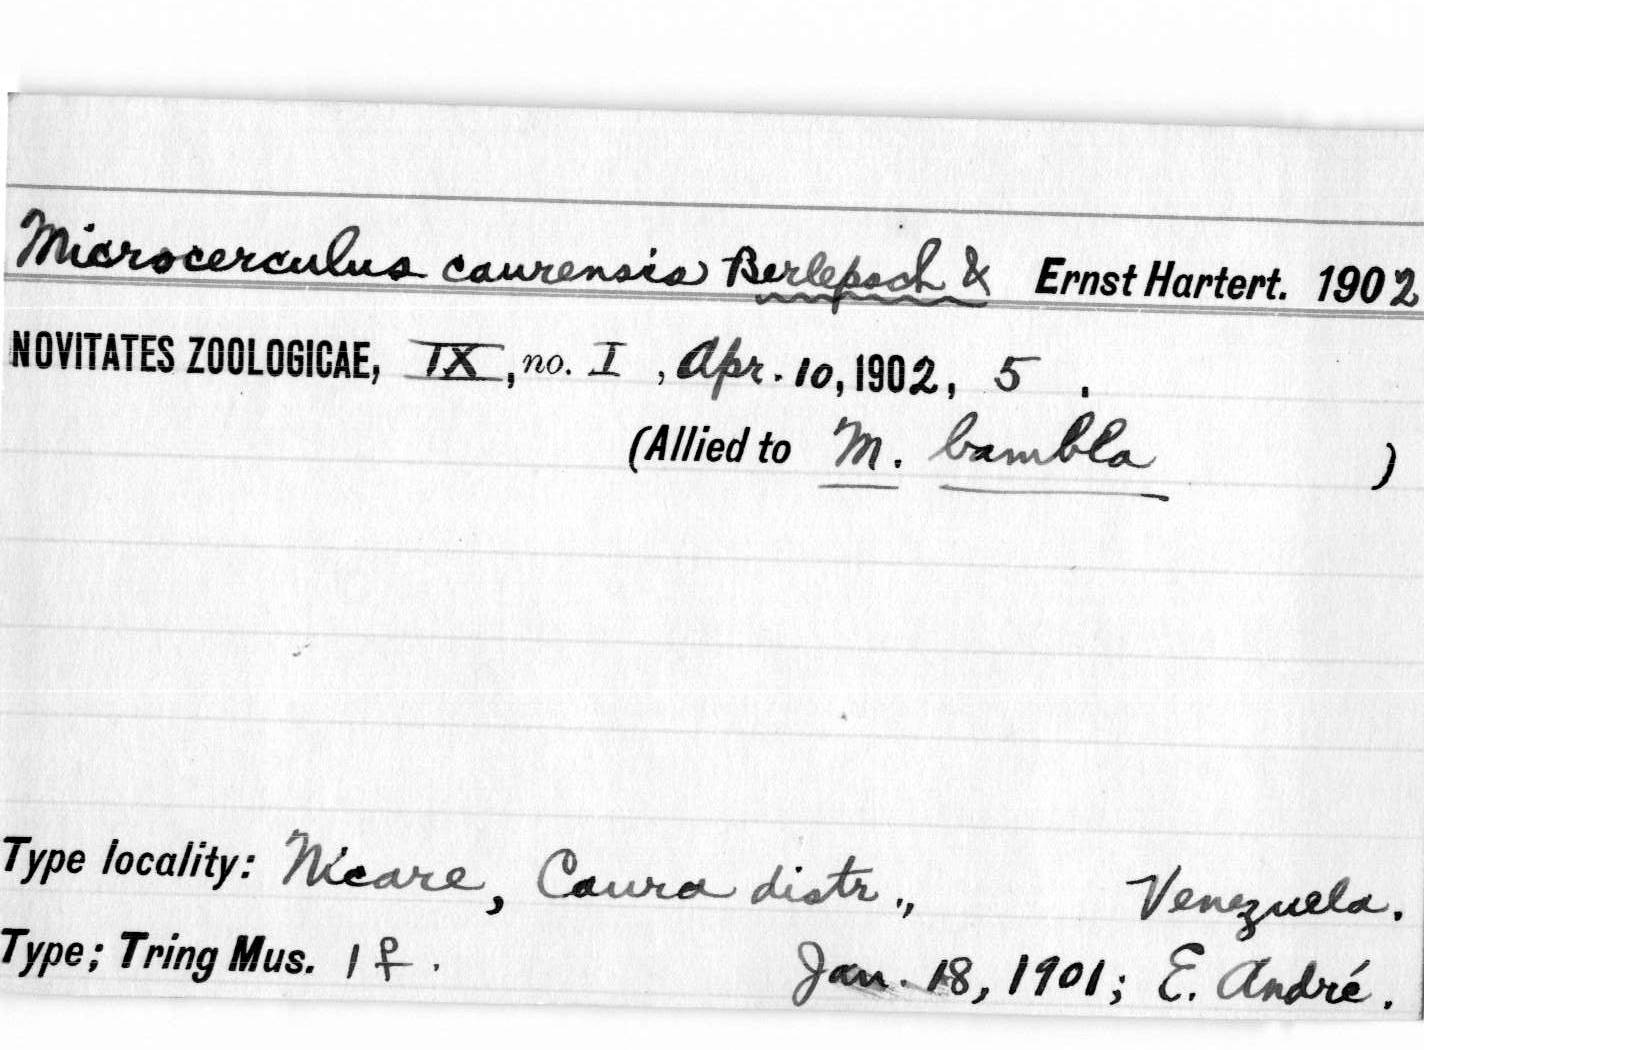 Microcerculus caurensis Berlepsch & Ernst Hartert. 1902
NOVITATES ZOOLOGICAE, IX, no. I, Apr. 10, 1902, 5.
(Allied to M. bambla )
Type locality: Nicare, Caura distr., Venezuela.
Type; Tring Mus. 1 ♀. Jan. 18, 1901; E. André.